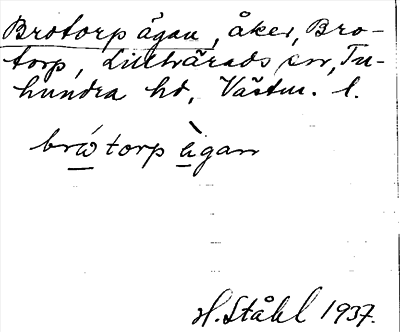 Brotorp ägan, åker, Bro-
torp, Lillhärads sn, Tu-
hundra hd, Västm. l.
brωtorp ägan
H. Ståhl 1937.